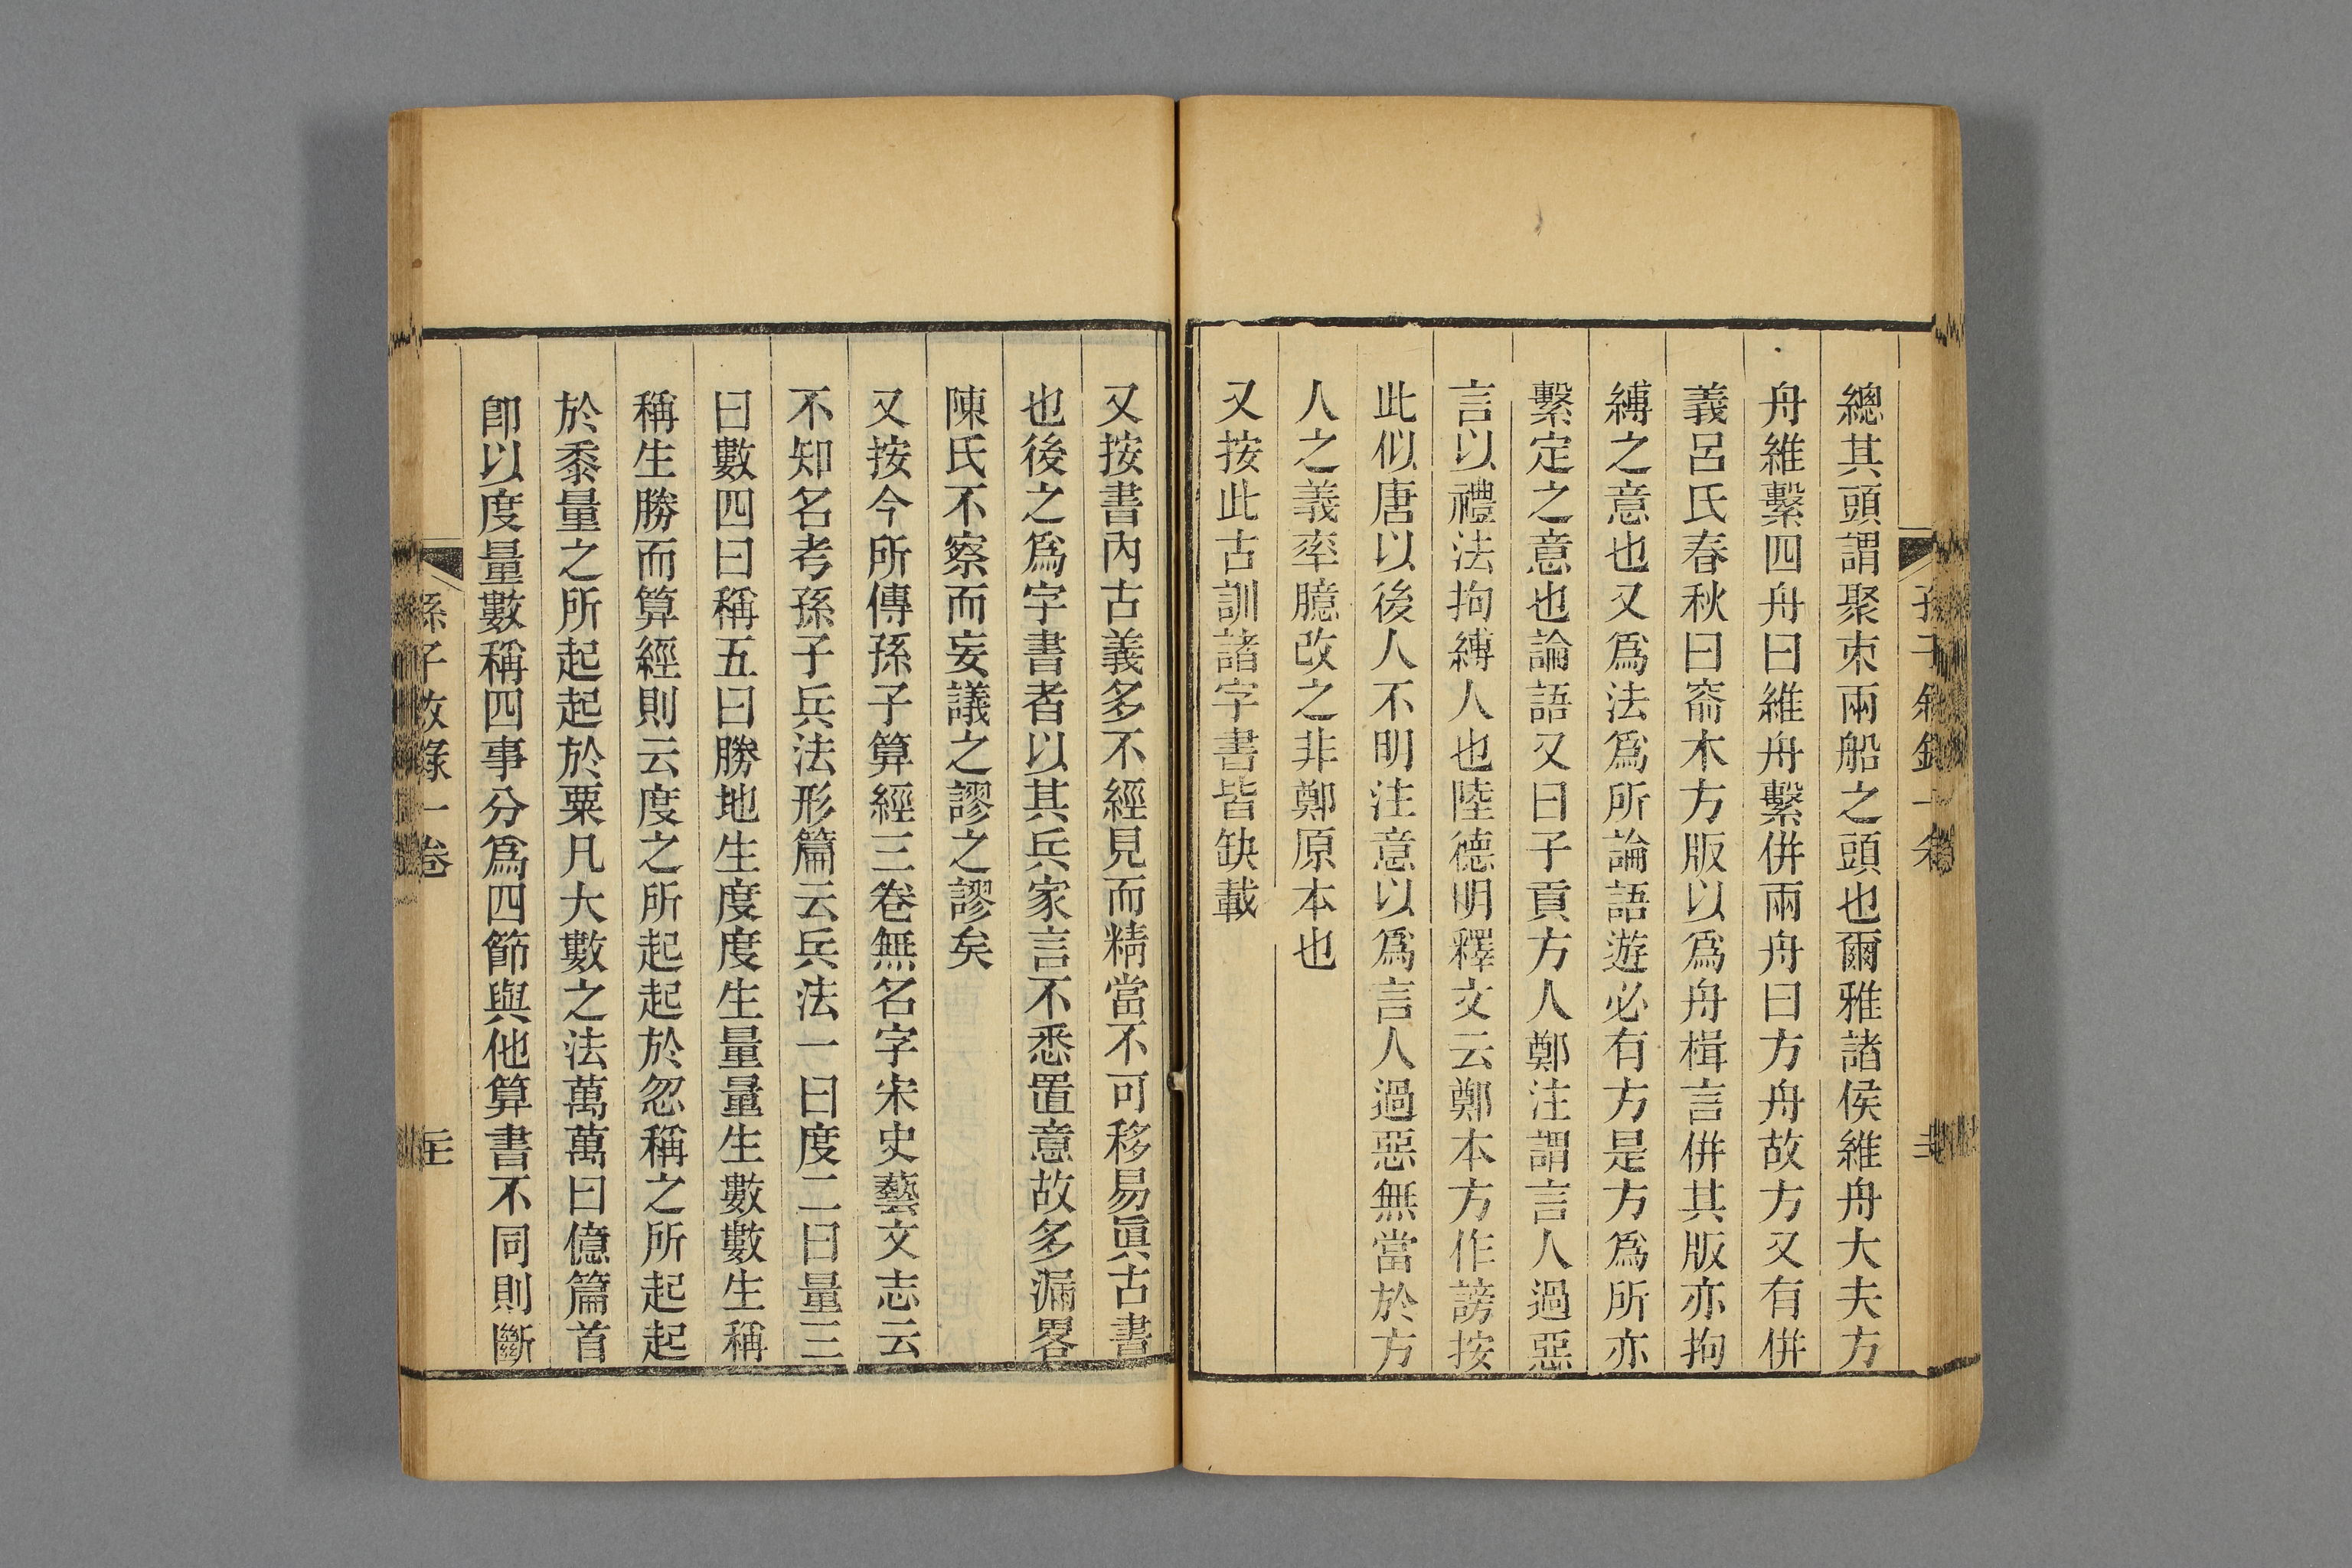 總其頭謂聚束兩船之頭也爾雅諸侯維舟大夫方
舟維繫四舟曰維舟繫併兩舟曰方舟故方又有併
義呂氏春秋曰窬木方版以爲舟楫言併其版亦拘
縛之意也又爲法爲所論語遊必有方是方爲所亦
繫定之意也論語又曰子貢方人鄭注謂言人過惡
言以禮法拘縛人也陸德明釋文云鄭本方作謗按
此似唐以後人不明注意以爲言人過惡無當於方
人之義率臆改之非鄭原本也
又按此古訓諸字書皆缺載
又按書內古義多不經見而精當不可移易眞古書
也後之爲字書者以其兵家言不悉置意故多漏畧
陳氏不察而妄議之謬之謬矣
又按今所傳孫子算經三卷無名字宋史藝文志云
不知名考孫子兵法形篇云兵法一曰度二曰量三
曰數四曰稱五曰勝地生度度生量量生數數生稱
稱生勝而算經則云度之所起起於忽稱之所起起
於黍量之所起起於粟凡大數之法萬萬曰億篇首
卽以度量數稱四事分爲四節與他算書不同則斷
孫子敘錄一卷